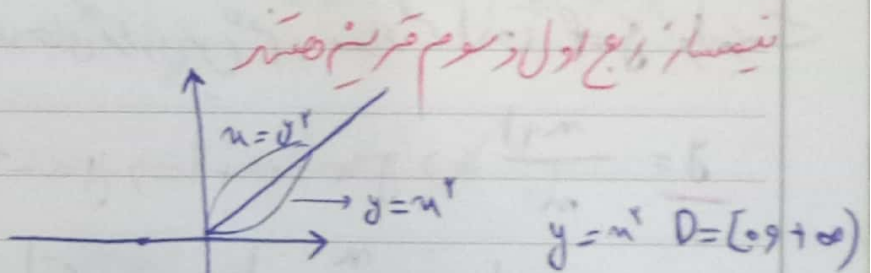 نیمساز ربع اول و سوم قرینه هستند
x = y²
y = x²
y = x² D = [0, +∞)